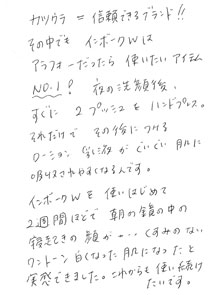 カツウラ = 信頼できるブランド!!
その中でも インボークWは
アラフォーだったら 使いたい アイテム
NO.1! 夜の洗顔後、
すぐに 2プッシュを ハンドプレス。
それだけで その後につける
ローション 美容液が ぐいぐい 肌に
吸収されやすくなるんです。
インボークWを 使いはじめて
2週間ほどで 朝の鏡の中の
寝起きの顔が・・・くすみのない
ワントーン 白くなった 肌になったと
実感できました。これからも 使い続け
たいです。